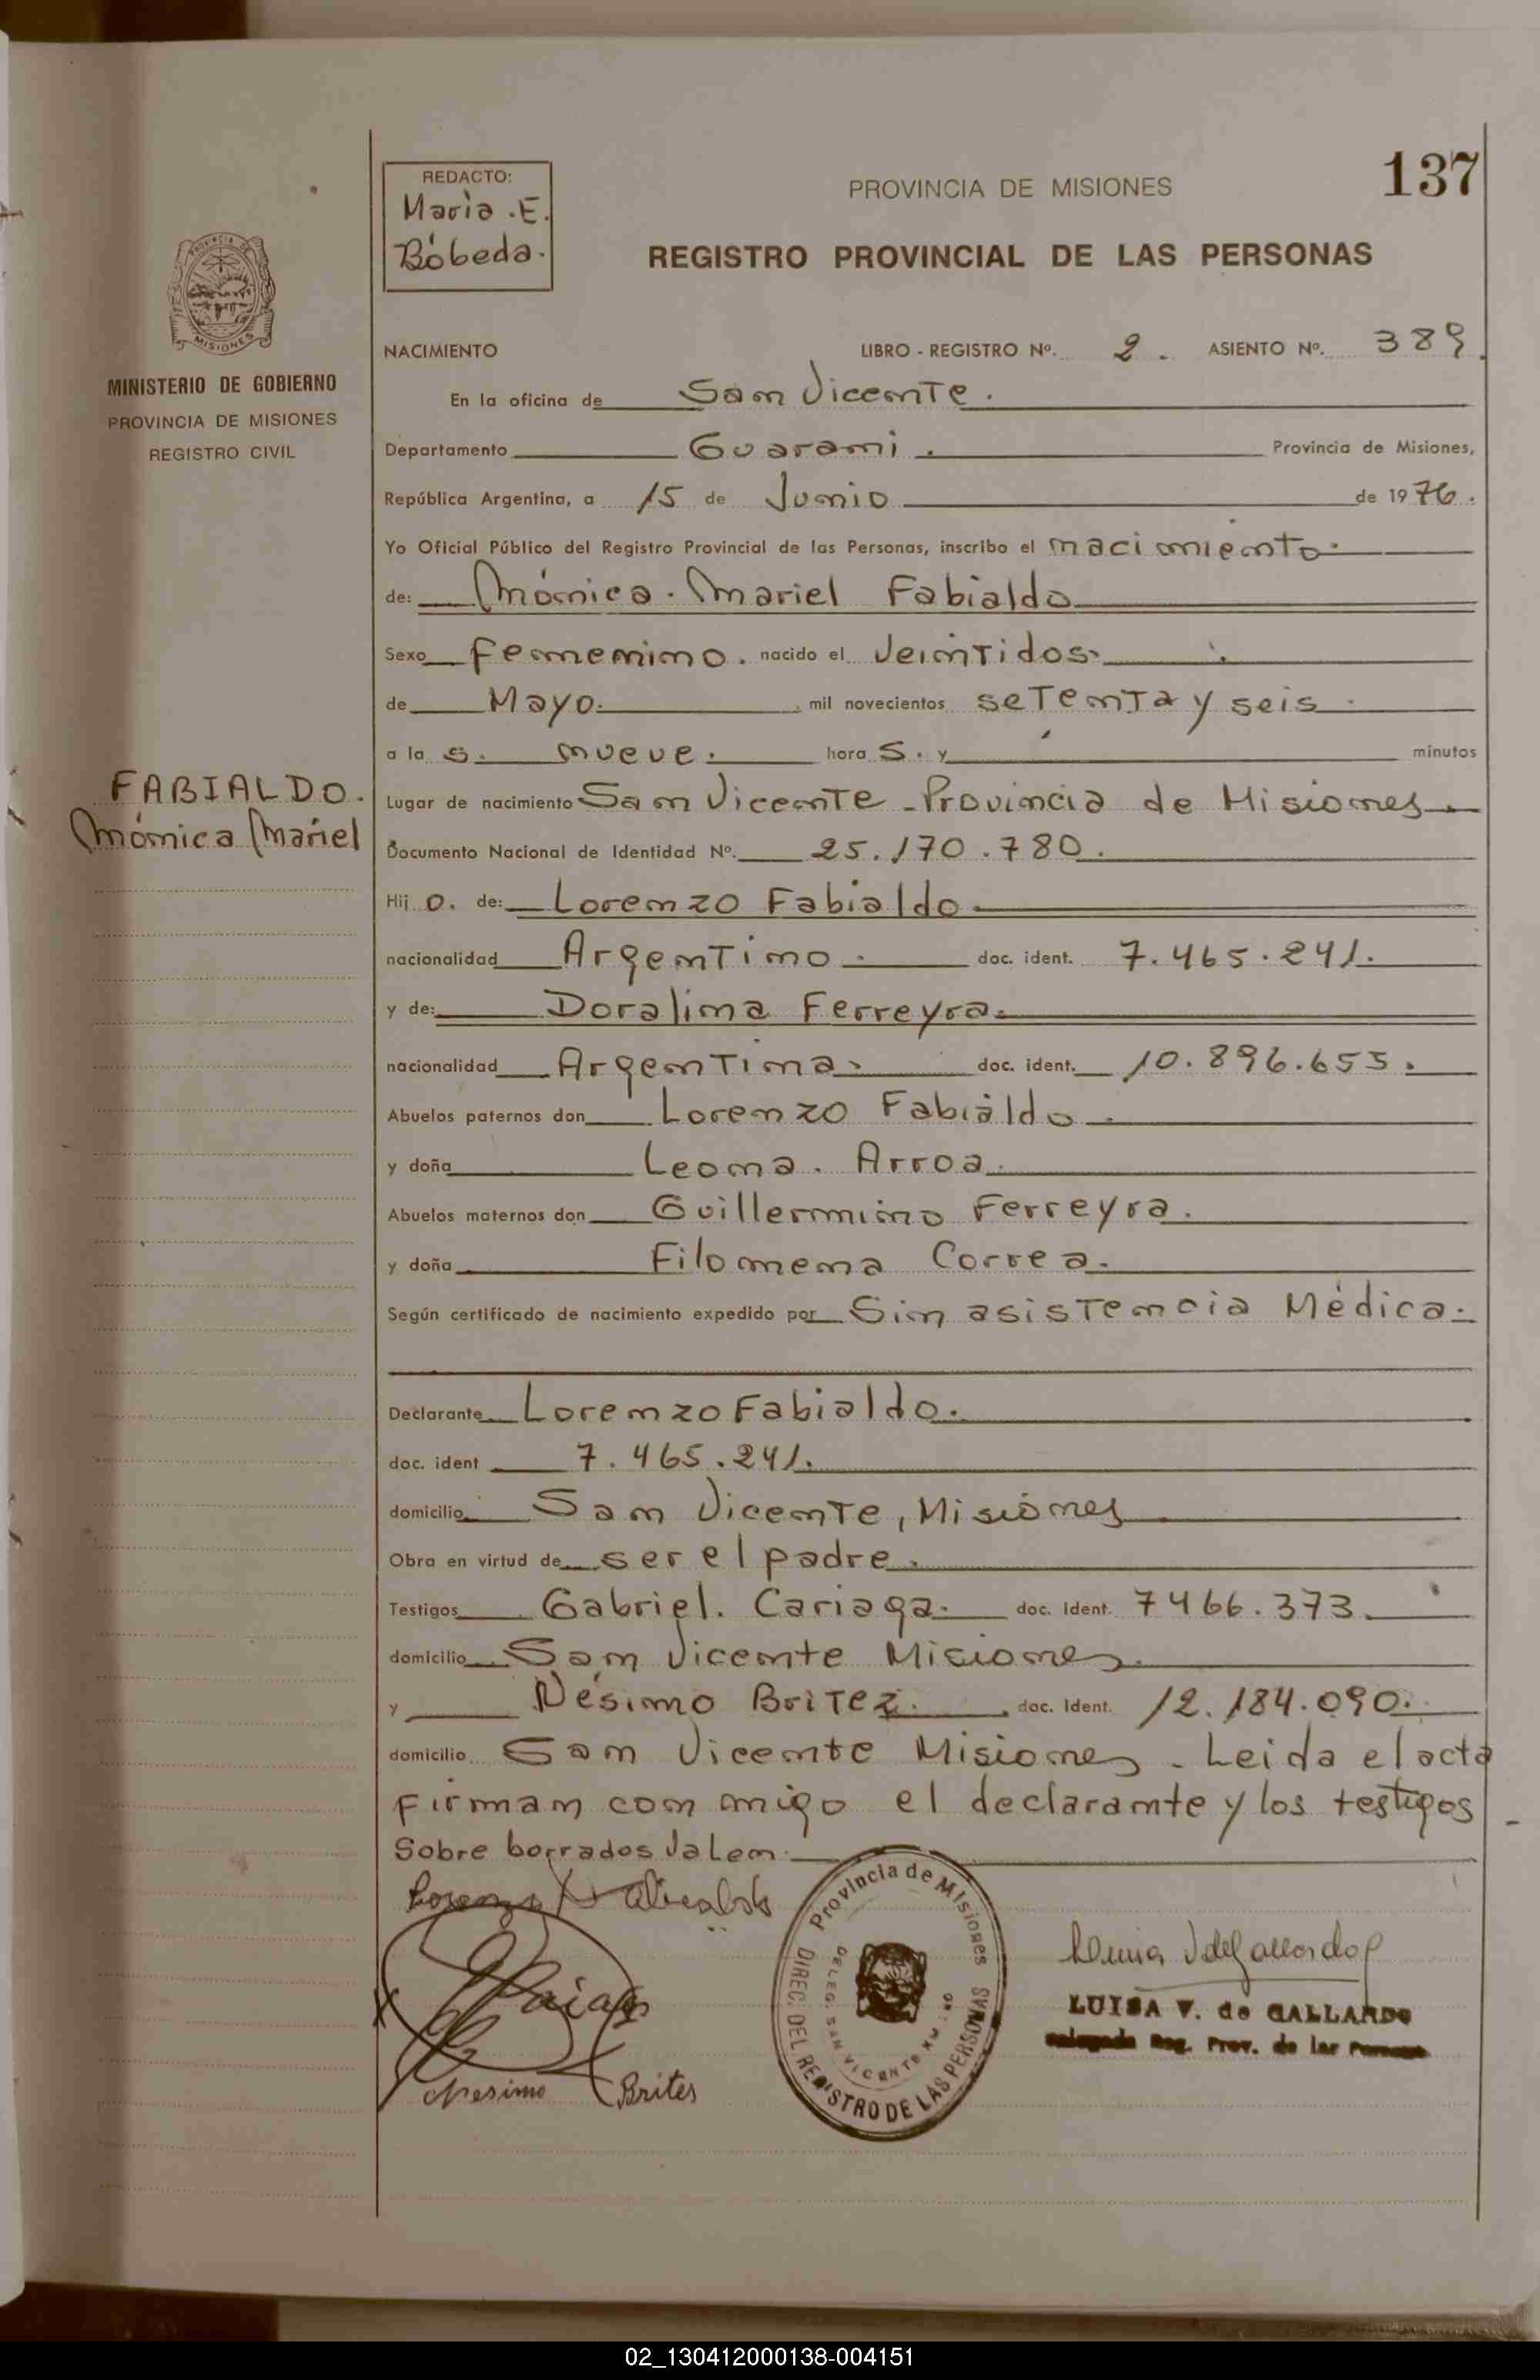 137
REDACTO:
María .E.
Bóbeda.
PROVINCIA DE MISIONES
REGISTRO PROVINCIAL DE LAS PERSONAS
PROVINCIA DE
MISIONES
MINISTERIO DE GOBIERNO
PROVINCIA DE MISIONES
REGISTRO CIVIL
NACIMIENTO LIBRO - REGISTRO Nº. 2. ASIENTO Nº. 389.
En la oficina de San Vicente.
Departamento Guarani. Provincia de Misiones,
República Argentina, a 15 de Junio de 1976.
Yo Oficial Público del Registro Provincial de las Personas, inscribo el nacimiento.
de: Mónica. Mariel Fabialdo
Sexo femenino. nacido el veintidos.
de Mayo. mil novecientos setenta y seis.
a la s. nueve. hora s. y minutos
FABIALDO.
Mónica Mariel
Lugar de nacimiento San Vicente - Provincia de Misiones
Documento Nacional de Identidad Nº. 25.170.780.
Hij o. de: Lorenzo Fabialdo.
nacionalidad Argentino. doc. ident. 7.465.241.
y de: Doralina Ferreyra.
nacionalidad Argentina. doc. ident. 10.896.653.
Abuelos paternos don Lorenzo Fabialdo.
y doña Leona. Arroa.
Abuelos maternos don Guillermino Ferreyra.
y doña Filomena Correa.
Según certificado de nacimiento expedido por Sin asistencia Médica.
Declarante Lorenzo Fabialdo.
doc. ident 7.465.241.
domicilio San Vicente, Misiones
Obra en virtud de ser el padre.
Testigos Gabriel. Cariaga. doc. Ident. 7466.373.
domicilio San Vicente Misiones.
y Nésimo Britez. doc. Ident. 12.184.090.
domicilio San Vicente Misiones. Leida el acta
firman con migo el declarante y los testigos
Sobre borrados Valen.
Nesimo Brites
Provincia de Misiones
DIREC. DEL REGISTRO DE LAS PERSONAS
DELEG. SAN VICENTE
LUISA V. de GALLARDO
Delegada Reg. Prov. de las Personas
02_130412000138-004151